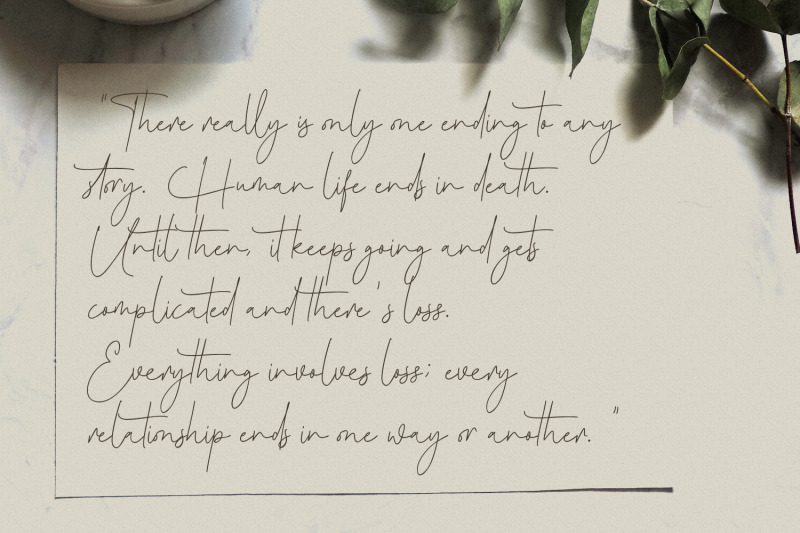 "There really is only one ending to any
story. Human life ends in death.
Until then, it keeps going and gets
complicated and there's loss.
Everything involves loss; every
relationship ends in one way or another. "